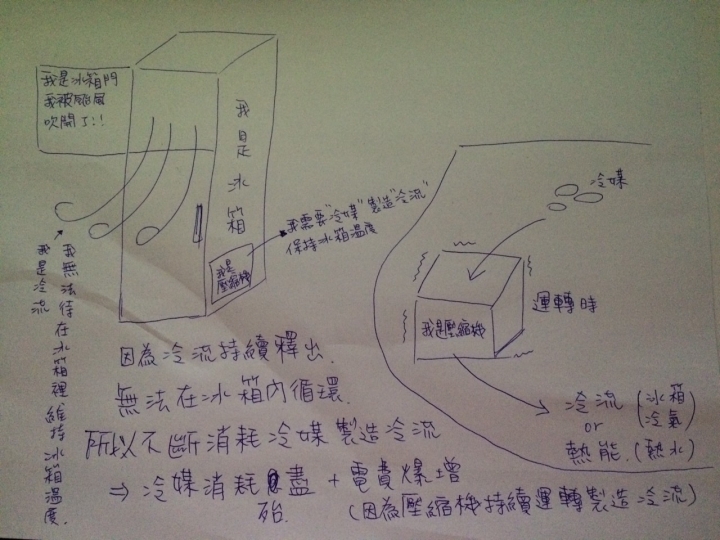 我是冰箱門
我被風
吹開了!!
我是冰箱
我需要"冷媒"製造"冷流"
保持冰箱溫度
我是
壓縮機
我無法待在冰箱裡維持冰箱溫度.
我是冷流
冷媒
我是壓縮機
運轉時
冷流 (冰箱
冷氣)
or
熱能. (熱水)
因為冷流持續釋出.
無法在冰箱內循環.
所以不斷消耗冷媒製造冷流
⇒ 冷媒消耗殆盡 + 電費爆增
(因為壓縮機持續運轉製造冷流)